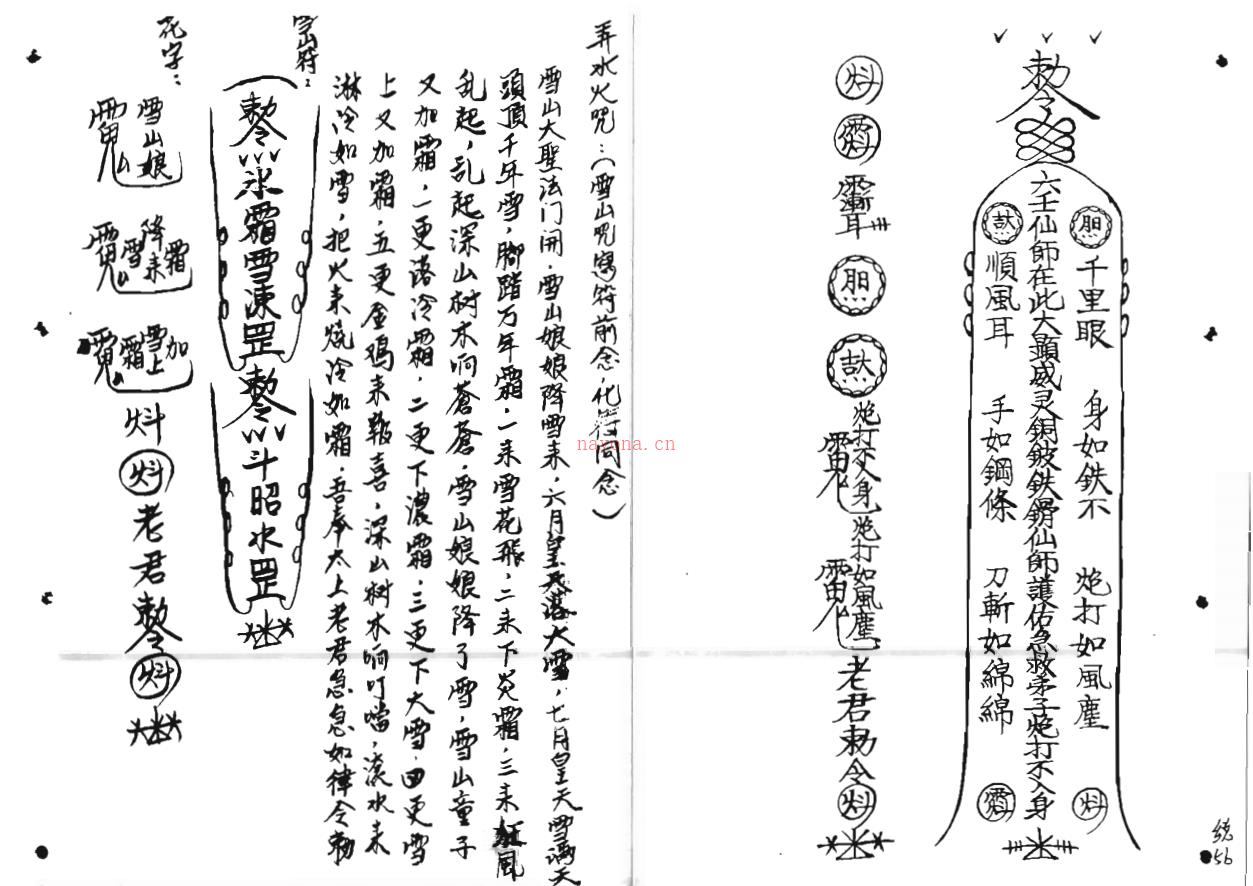 勅令
六壬仙師在此大顯威灵銅鈹鉄鎖仙師護佑急救弟子炮打不入身
胆 千里眼 身如鉄不 炮打如風塵
順風耳 手如鋼條 刀斬如綿綿
胆
炮打不入身 炮打如風塵 老君勅令
統56
弄水火咒:(雪山咒寫符前念化符同念)
雪山大聖法门開.雪山娘娘降雪来,六月皇天落大雪,七月皇天雪满天
頭頂千年雪,腳踏万年霜,一来雪花飛,二来下炎霜,三来狂風
乱起,乱起深山树木响蒼蒼,雪山娘娘降了雪,雪山童子
又加霜,一更落冷霜,二更下濃霜,三更下大雪,四更雪
上又加霜,五更金鸡来報喜,深山树木响叮噹,滚水来
淋冷如雪,把火来燒冷如霜,吾奉太上老君急急如律令勅
雪山符:
勅令 氷霜雪凍罡 勅令 斗昭水罡
花字:
雪山娘 降雪来霜 雪上加霜 老君勅令
nayona.cn